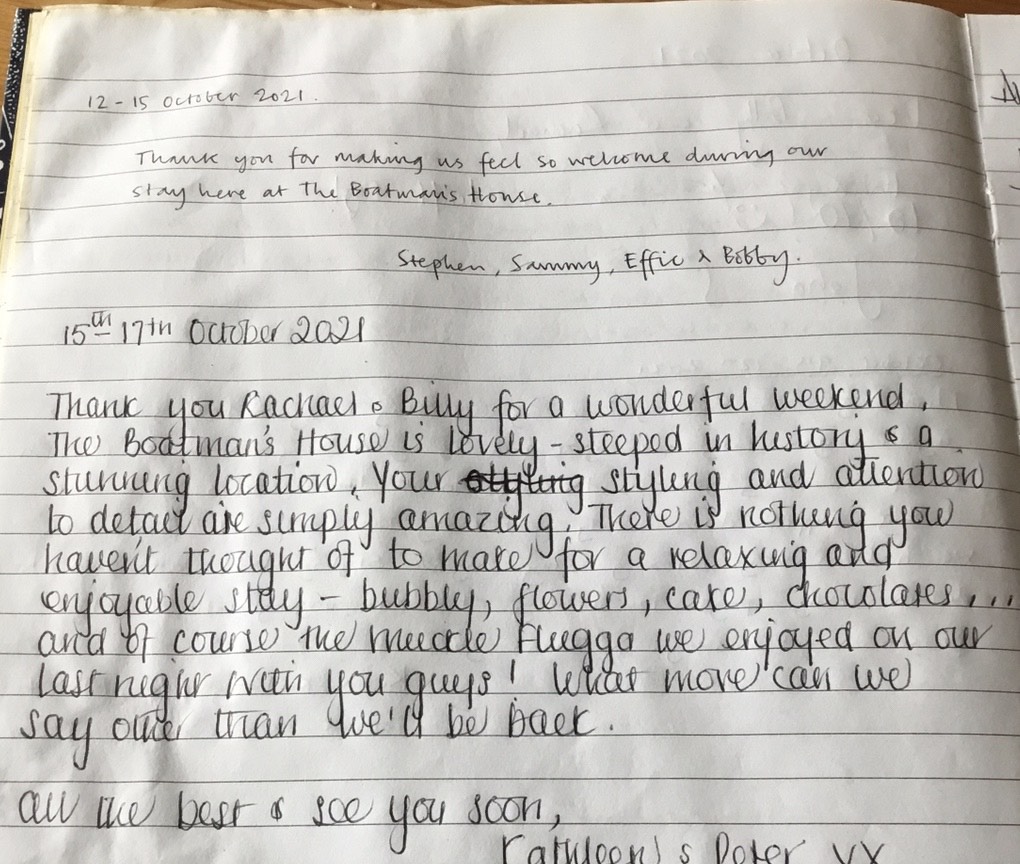 12 - 15 October 2021.
Thank you for making us feel so welcome during our
stay here at The Boatman's House.
Stephen, Sammy, Effie & Bobby.
15th 17th October 2021
Thank you Rachael & Billy for a wonderful weekend.
The Boatman's House is lovely - steeped in history & a
stunning location. Your styling and attention
to detail are simply amazing. There is nothing you
haven't thought of to make for a relaxing and
enjoyable stay - bubbly, flowers, cake, chocolates, ...
and of course the Muckle Flugga we enjoyed on our
last night with you guys! What more can we
say other than we'll be back.
All the best & see you soon,
& Peter xx